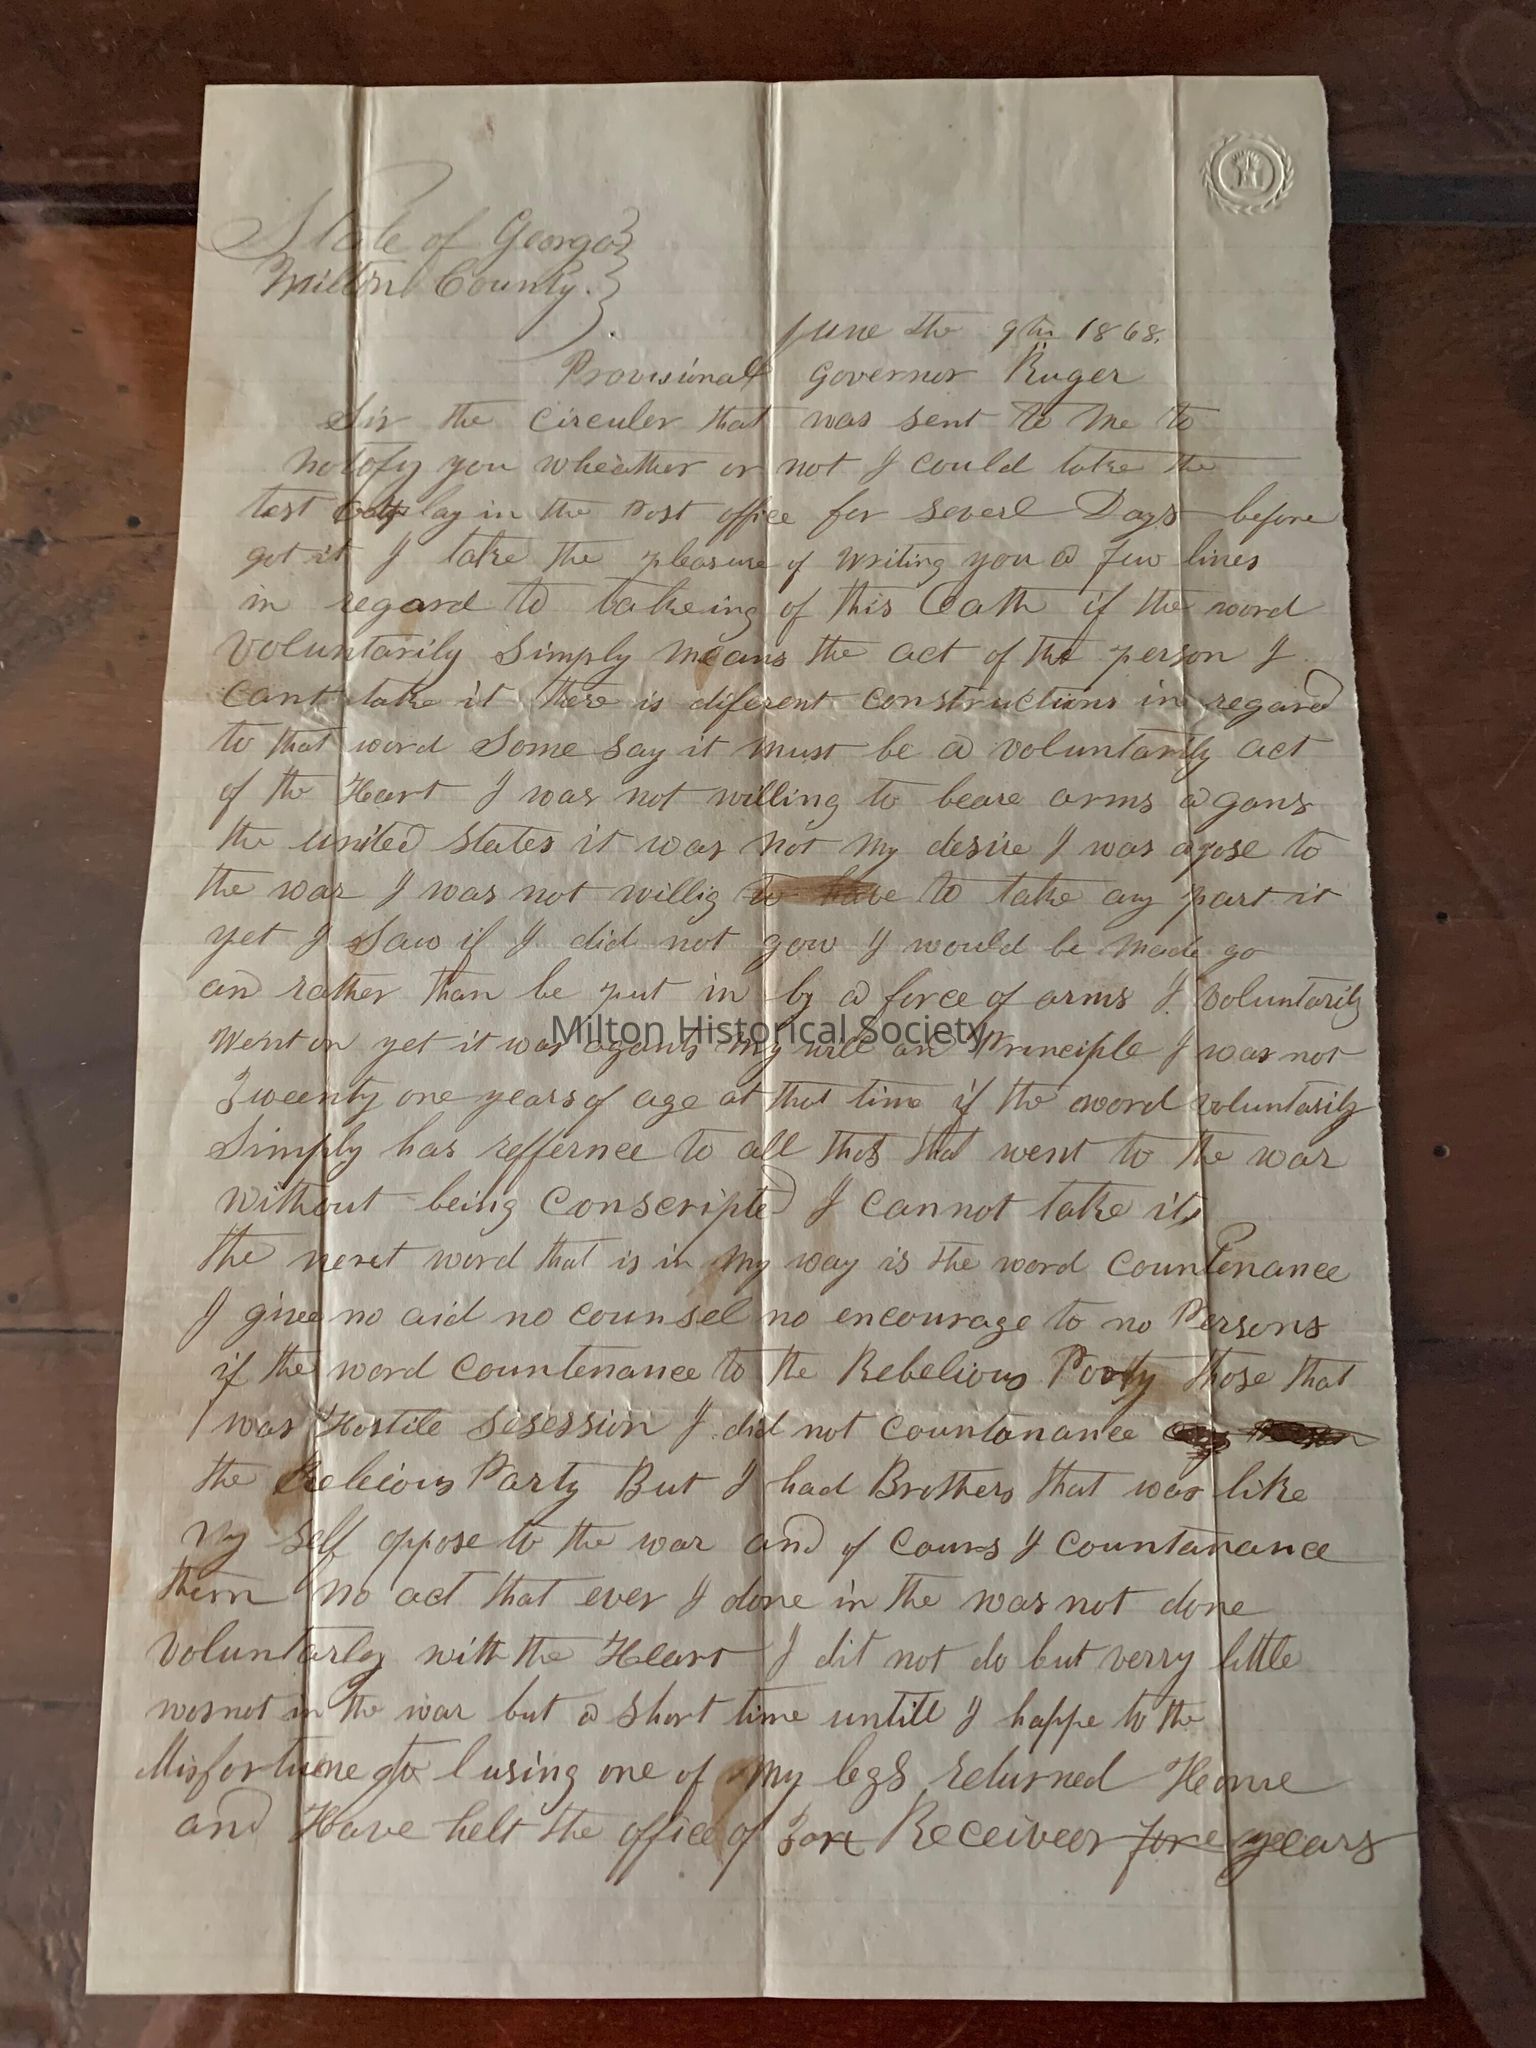 State of Georga }
Milton County. }
June the 9th 1868.
Provisional Governor Ruger
Sir the circuler that was sent to me to
notofy you wheather or not I could take the
test lay in the Post office for severl Days before
got it I take the pleasure of writing you a few lines
in regard to takeing of this Oath if the word
Voluntarily Simply means the act of the person I
cant take it there is diferent constructions in regard
to that word Some say it must be a voluntarily act
of the Heart I was not willing to beare arms agans
the united States it was not my desire I was apose to
the war I was not willig to have to take any part it
yet I Saw if I did not gow I would be made go
and rather than be put in by a force of arms I Voluntarily
went on yet it was agants my will an Principle I was not
Tweenty one years of age at that time if the word voluntarily
Simply has reffernce to all thos that went to the war
without being Conscripted I cannot take it,
the next word that is in my way is the word Countenance
I give no aid no counsel no encourage to no Persons
if the word countenance to the Rebelious Party those that
was Hostile Sesession I did not countanance
the Party But I had Brothers that was like
my self oppose to the war and of cours I countanance
them no act that ever I done in the was not done
Voluntarley with the Heart I dit not do but verry little
wasnot in the war but a short time untill I happe to the
Misfortune to lusing one of my legs returned Home
and Have helt the office of Tax Receiveer fore yeears
Milton Historical Society